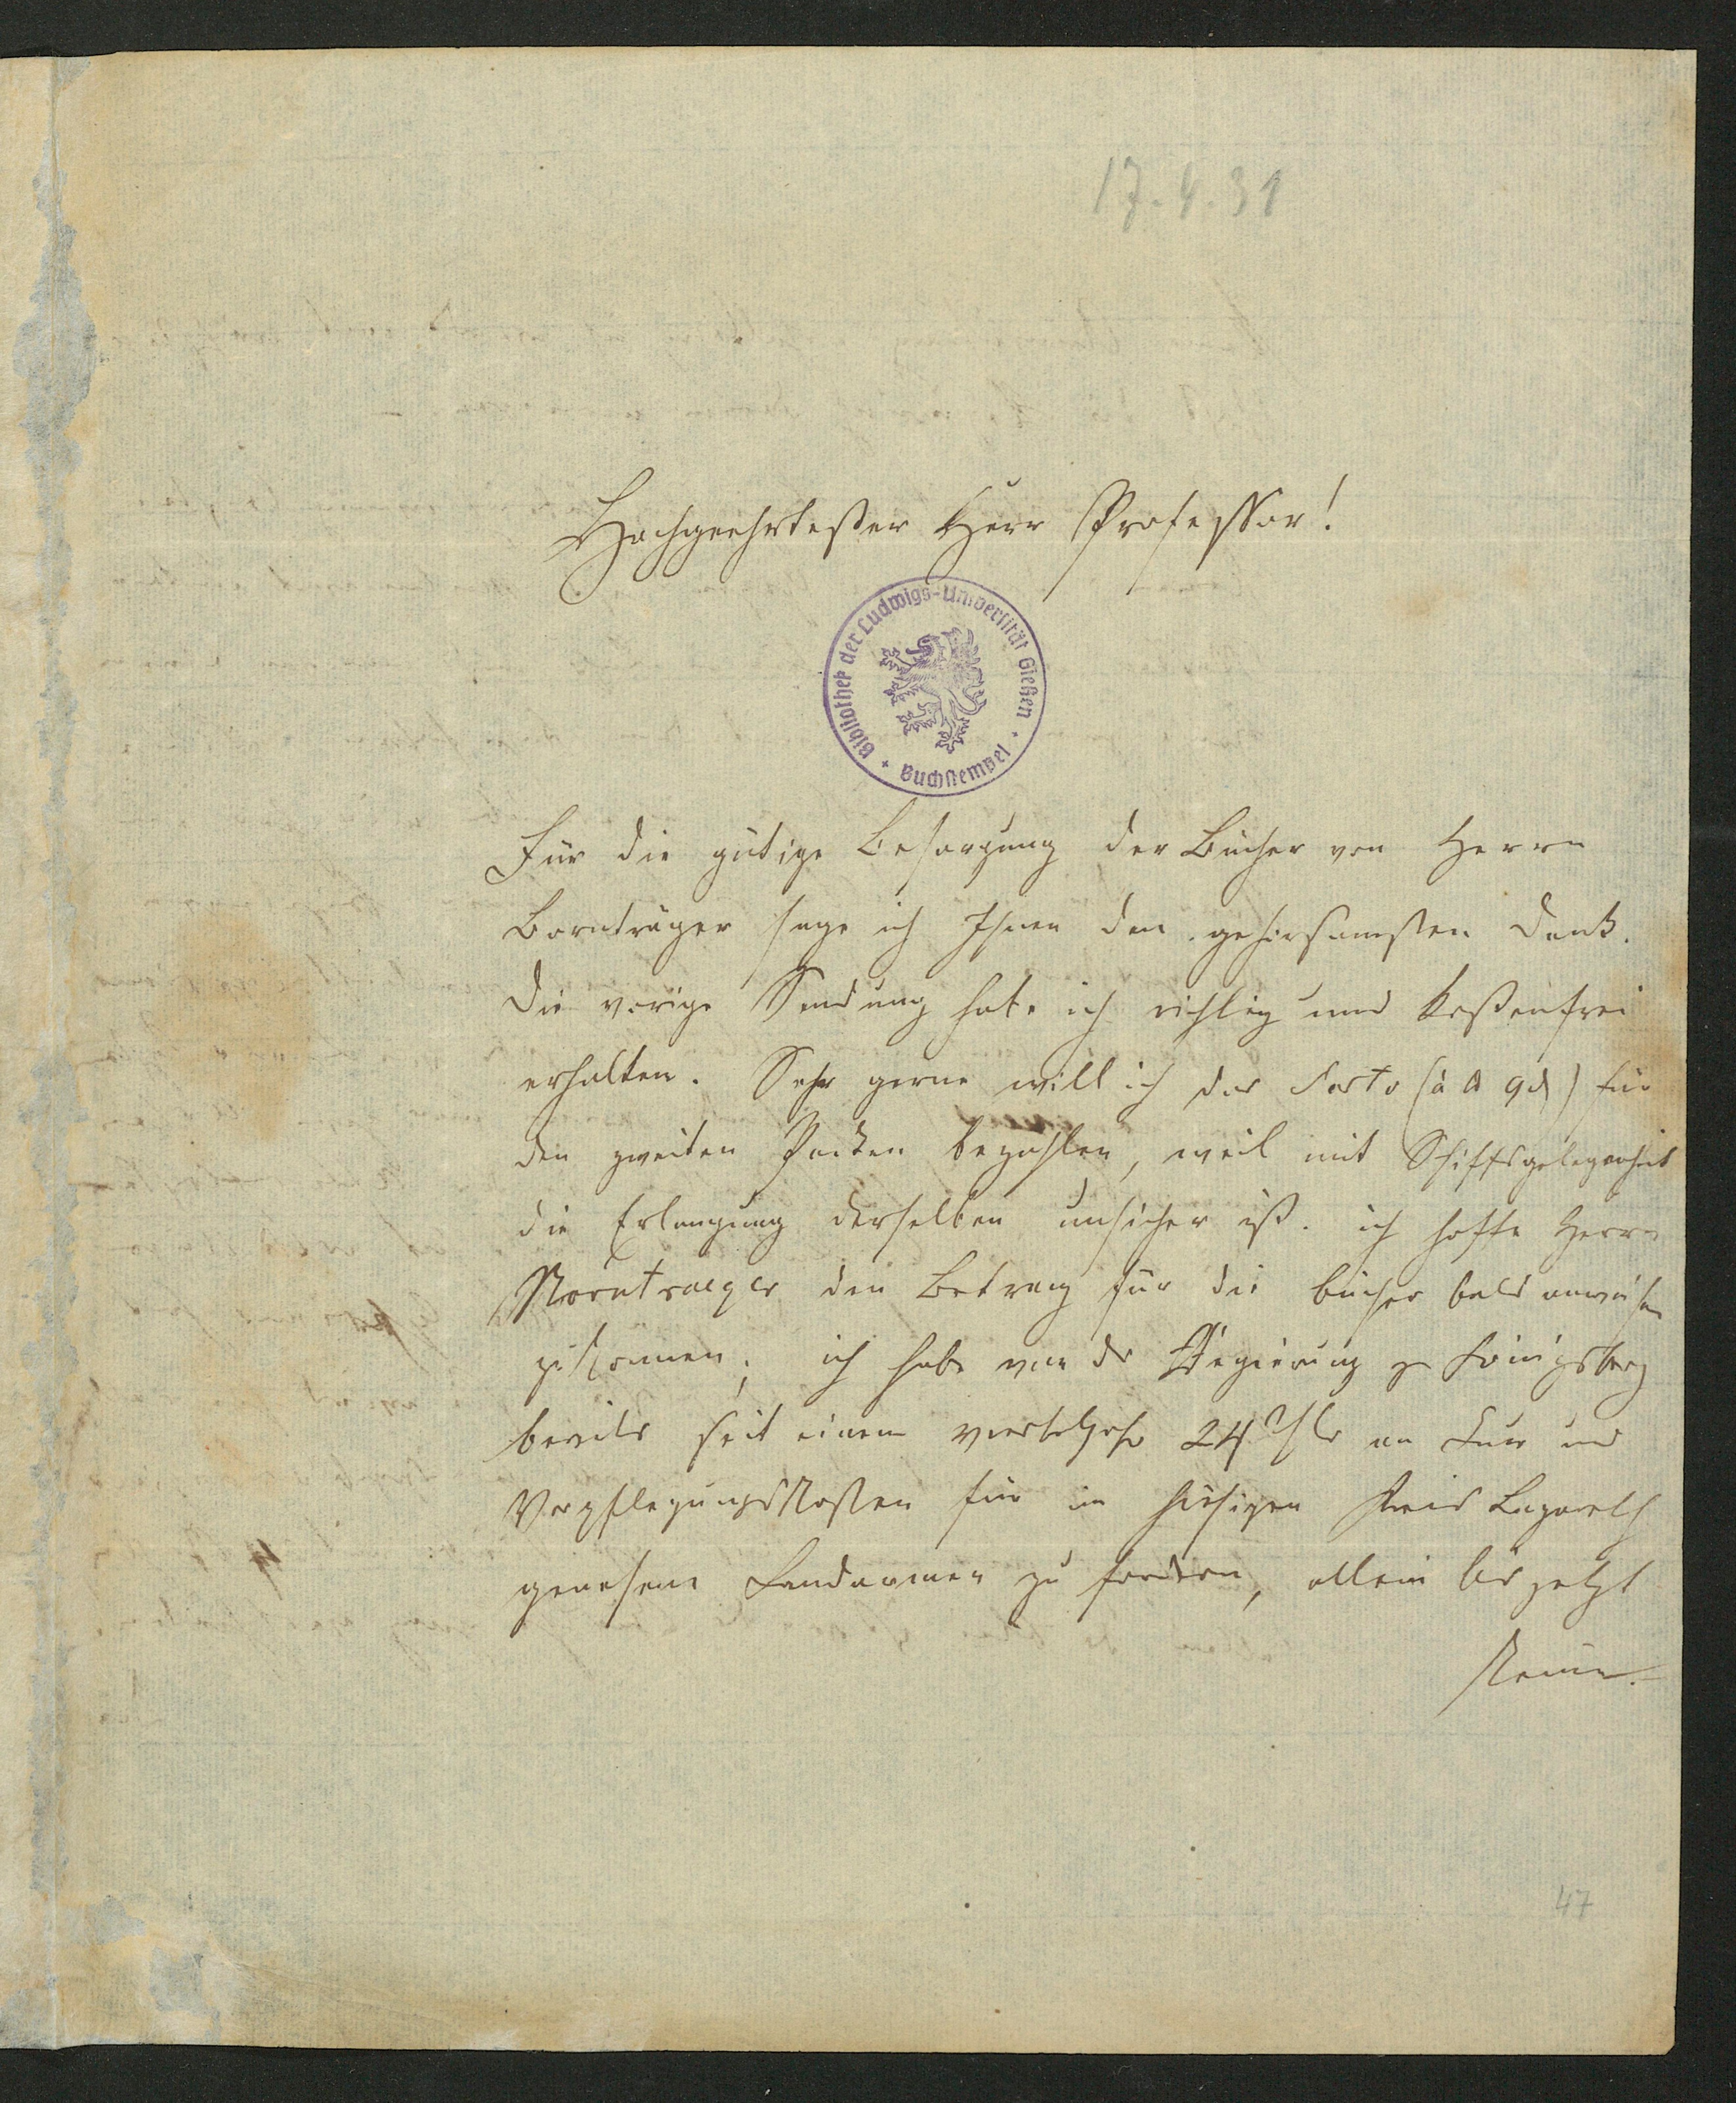 17.4.31
Hochgeehrtester Herr Professor!
Bibliothek der Ludwigs-Universität Gießen
Buchstempel
Für die gütige Besorgung der Bücher von Herrn
Bornträger sage ich Ihnen den gehorsamsten Dank.
Die vorige Sendung habe ich richtig und kostenfrei
erhalten. Sehr gerne will ich das Porto (à ℔ 9 ₰) für
den zweiten Packen bezahlen, weil mit Schiffsgelegenheit
die Erlangung derselben unsicher ist. ich hoffe Herrn
Borntraeger den Betrag für die Bücher bald anweisen
zu können; ich habe von der Regierung zu Königsberg
bereits seit einem Vierteljahr 24 Thlr an Kur und
Verpflegungskosten für im hiesigen Kreis Lazareth
genesene Gendarmen zu fordern, allein bis jetzt
keine
47